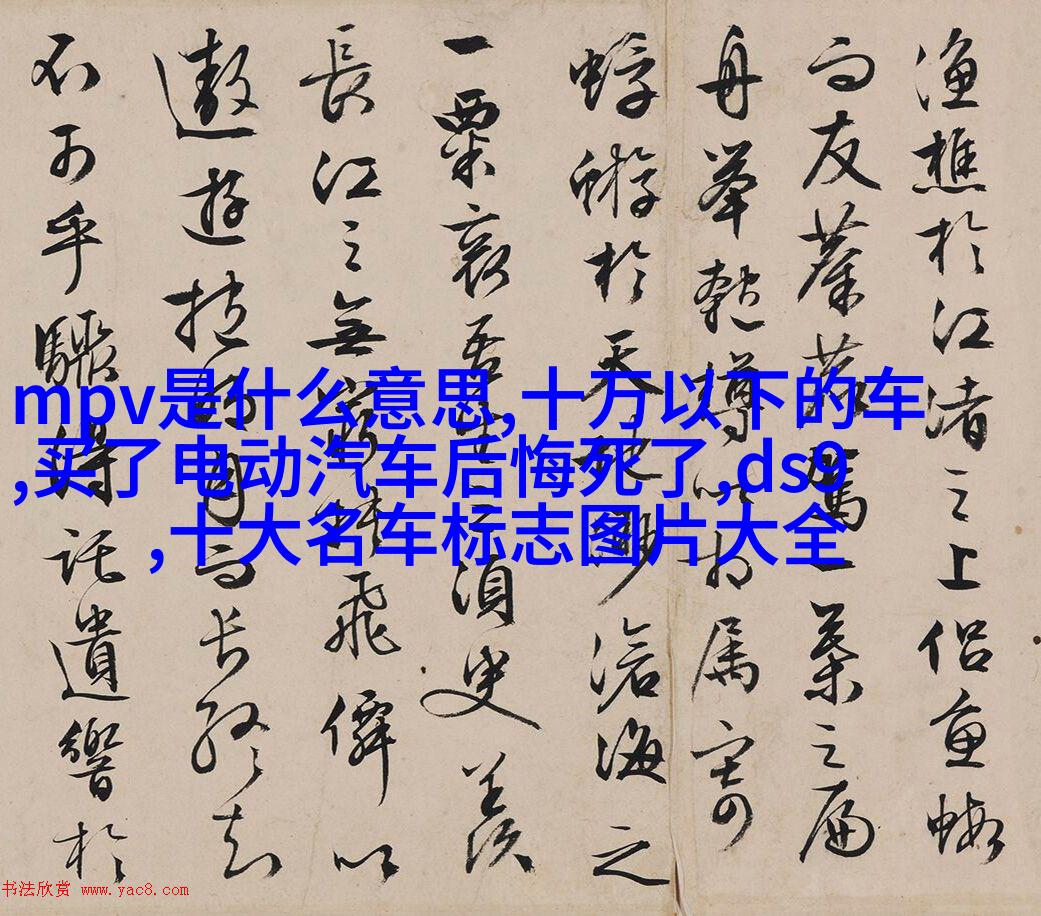 漁樵於江渚之上侶魚蝦
而友麋鹿駕一葉之扁
舟舉匏樽以相属寄
蜉蝣於天地眇滄海之
一粟哀吾生之須臾羨
長江之無窮挾飛僊以
遨遊抱明月而長終知
不可乎驟得託遺響於
mpv是什么意思,十万以下的车
,买了电动汽车后悔死了,ds9
,十大名车标志图片大全
书法欣赏 www.yac8.com